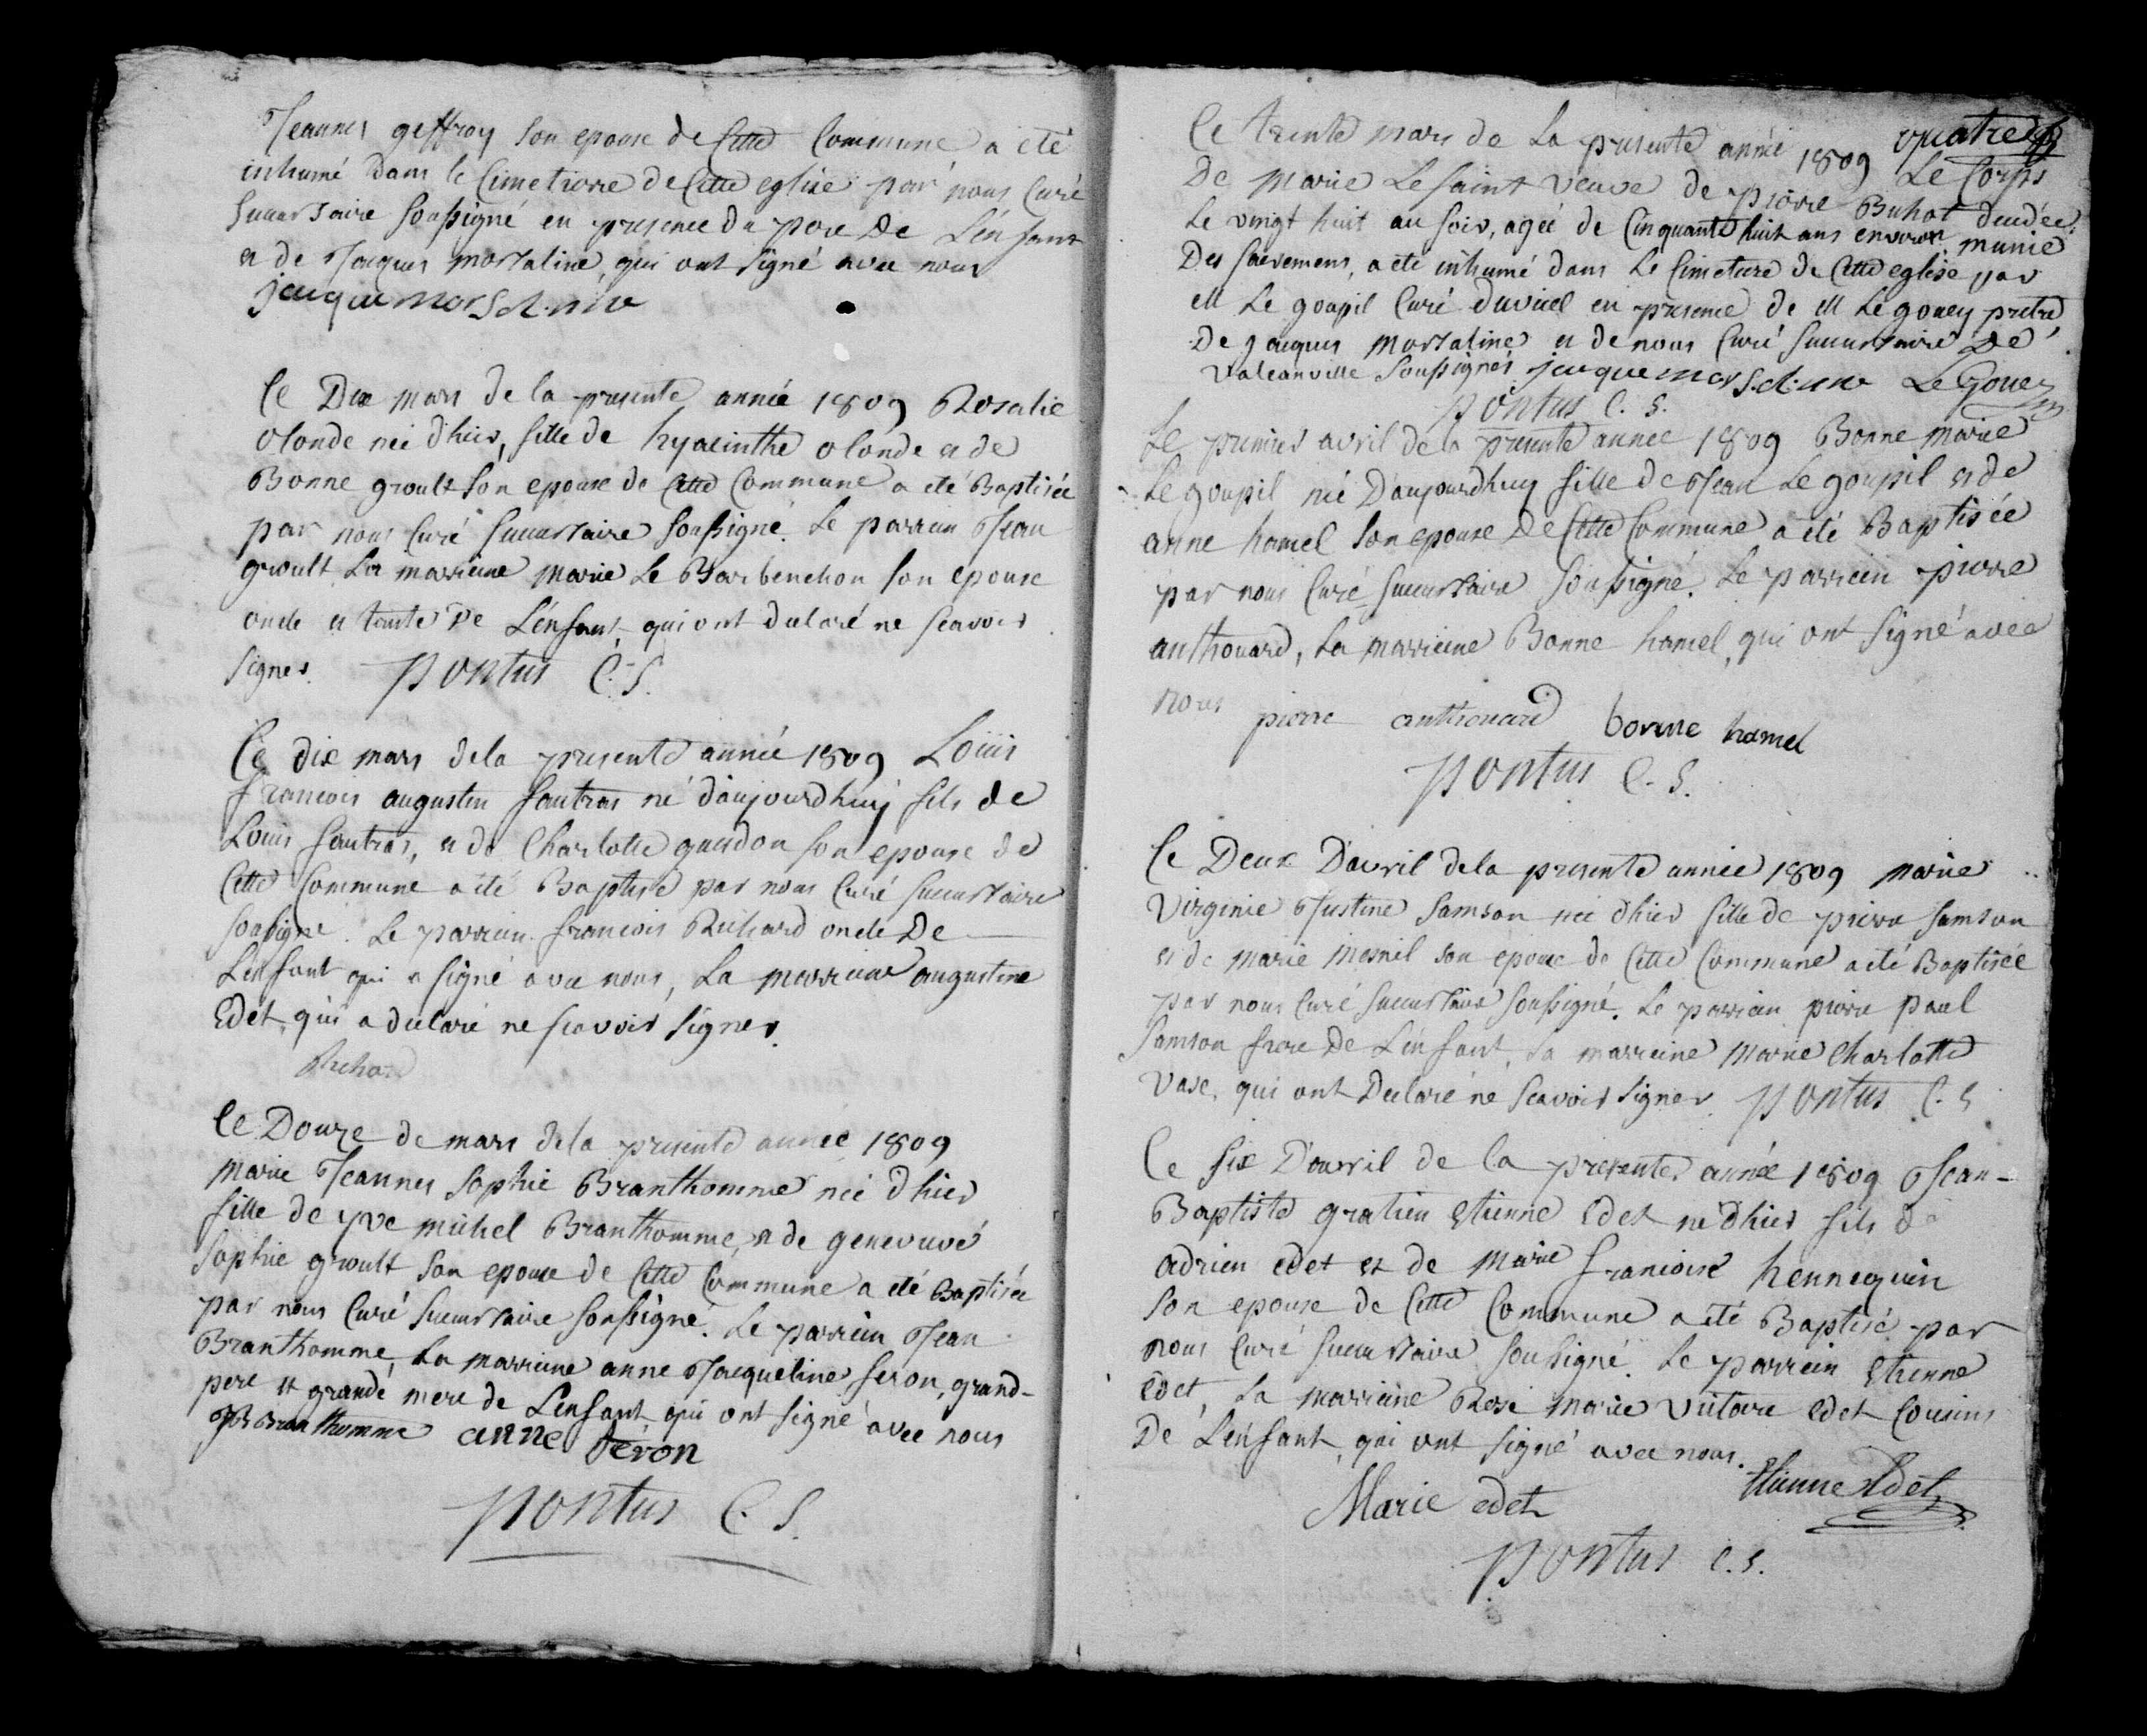 Jeannes geffroy son epouse de Cette Commune a eté
inhumé dans le Cimetierre de Cette eglise par nous Curé
succursaire soussigné en presence du pere de L'enfant
et de Jacques mortaline, qui ont signé avec nous
jacque mor
Ce Dix mars de la presente année 1809 Rosalie
olonde née d'hier, fille de hyacinthe olonde et de
Bonne groult son epouse de Cette Commune a eté Baptisée
par nous Curé succursaire soussigné. Le parrain Jean
groult La marraine marie Le Barbenchon son epouse
oncle et tante De L'enfant, qui ont declaré ne scavoir
signer. pontus C. S.
Ce dix mars de la presente année 1809 Louis
francois augustin fautras né d'aujourdhuy fils de
Louis fautras, et de Charlotte guesdon son epouse de
Cette Commune a eté Baptisé par nous Curé succursaire
soussigné. Le parrain francois Richard oncle De
L'enfant qui a signé avec nous, La marraine augustine
Edet, qui a declaré ne scavoir signer.
Richard
Ce Douze de mars de la presente année 1809
marie Jeannes Sophie Branthomme née d'hier
fille de yve michel Branthomme, et de genevieve
sophie groult son epouse de Cette Commune a eté Baptisée
par nous Curé succursaire soussigné. Le parrain Jean
Branthomme, La marraine anne Jacqueline feron, grand-
pere et grande mere de L'enfant, qui ont signé avec nous
Branthomme anne feron
pontus C. S.
quatre
Ce trente mars de La presente année 1809 Le Corps
De marie Le saint veuve de pierre Buhot decedée
Le vingt huit au soir, agée de Cinquante huit ans environ, munie
Des sacremens, a eté inhumé dans Le Cimetiere de Cette eglise par
M Le goupil Curé du vicel en presence de M Le gouey pretre
De Jacques mortaline et de nous Curé succursaire De
Valcanville soussignés jacque mor Le Gouey
pontus C. S.
Le premier avril de la presente année 1809 Bonne marie
Le goupil née D'aujourdhuy fille de Jean Le goupil et de
anne hamel son epouse De Cette Commune a été Baptisée
par nous Curé succursaire soussigné. Le parrein pierre
anthouard, La marraine Bonne hamel, qui ont signé avec
nous pierre anthouard bonne hamel
pontus C. S.
Ce Deux D'avril de la presente année 1809 marie
Virginie Justine Samson née d'hier fille de pierre Samson
et de marie mesnil son epouse de Cette Commune a eté Baptisée
par nous Curé succursaire soussigné. Le parrain pierre paul
Samson frere De L'enfant, La marraine marie Charlotte
vase, qui ont Declaré ne scavoir signer pontus C. S
Ce six D'avril de la presente année 1809 Jean-
Baptiste gratien Etienne Edet né d'hier fils de
adrien edet et de marie francoise hennequin
son epouse de Cette Commune a eté Baptisé par
nous Curé succursaire soussigné. Le parrein Etienne
edet, La marraine Rose marie victoire edet Cousins
De L'enfant, qui ont signé avec nous.
Marie edet Etienne Edet
pontus C. S.